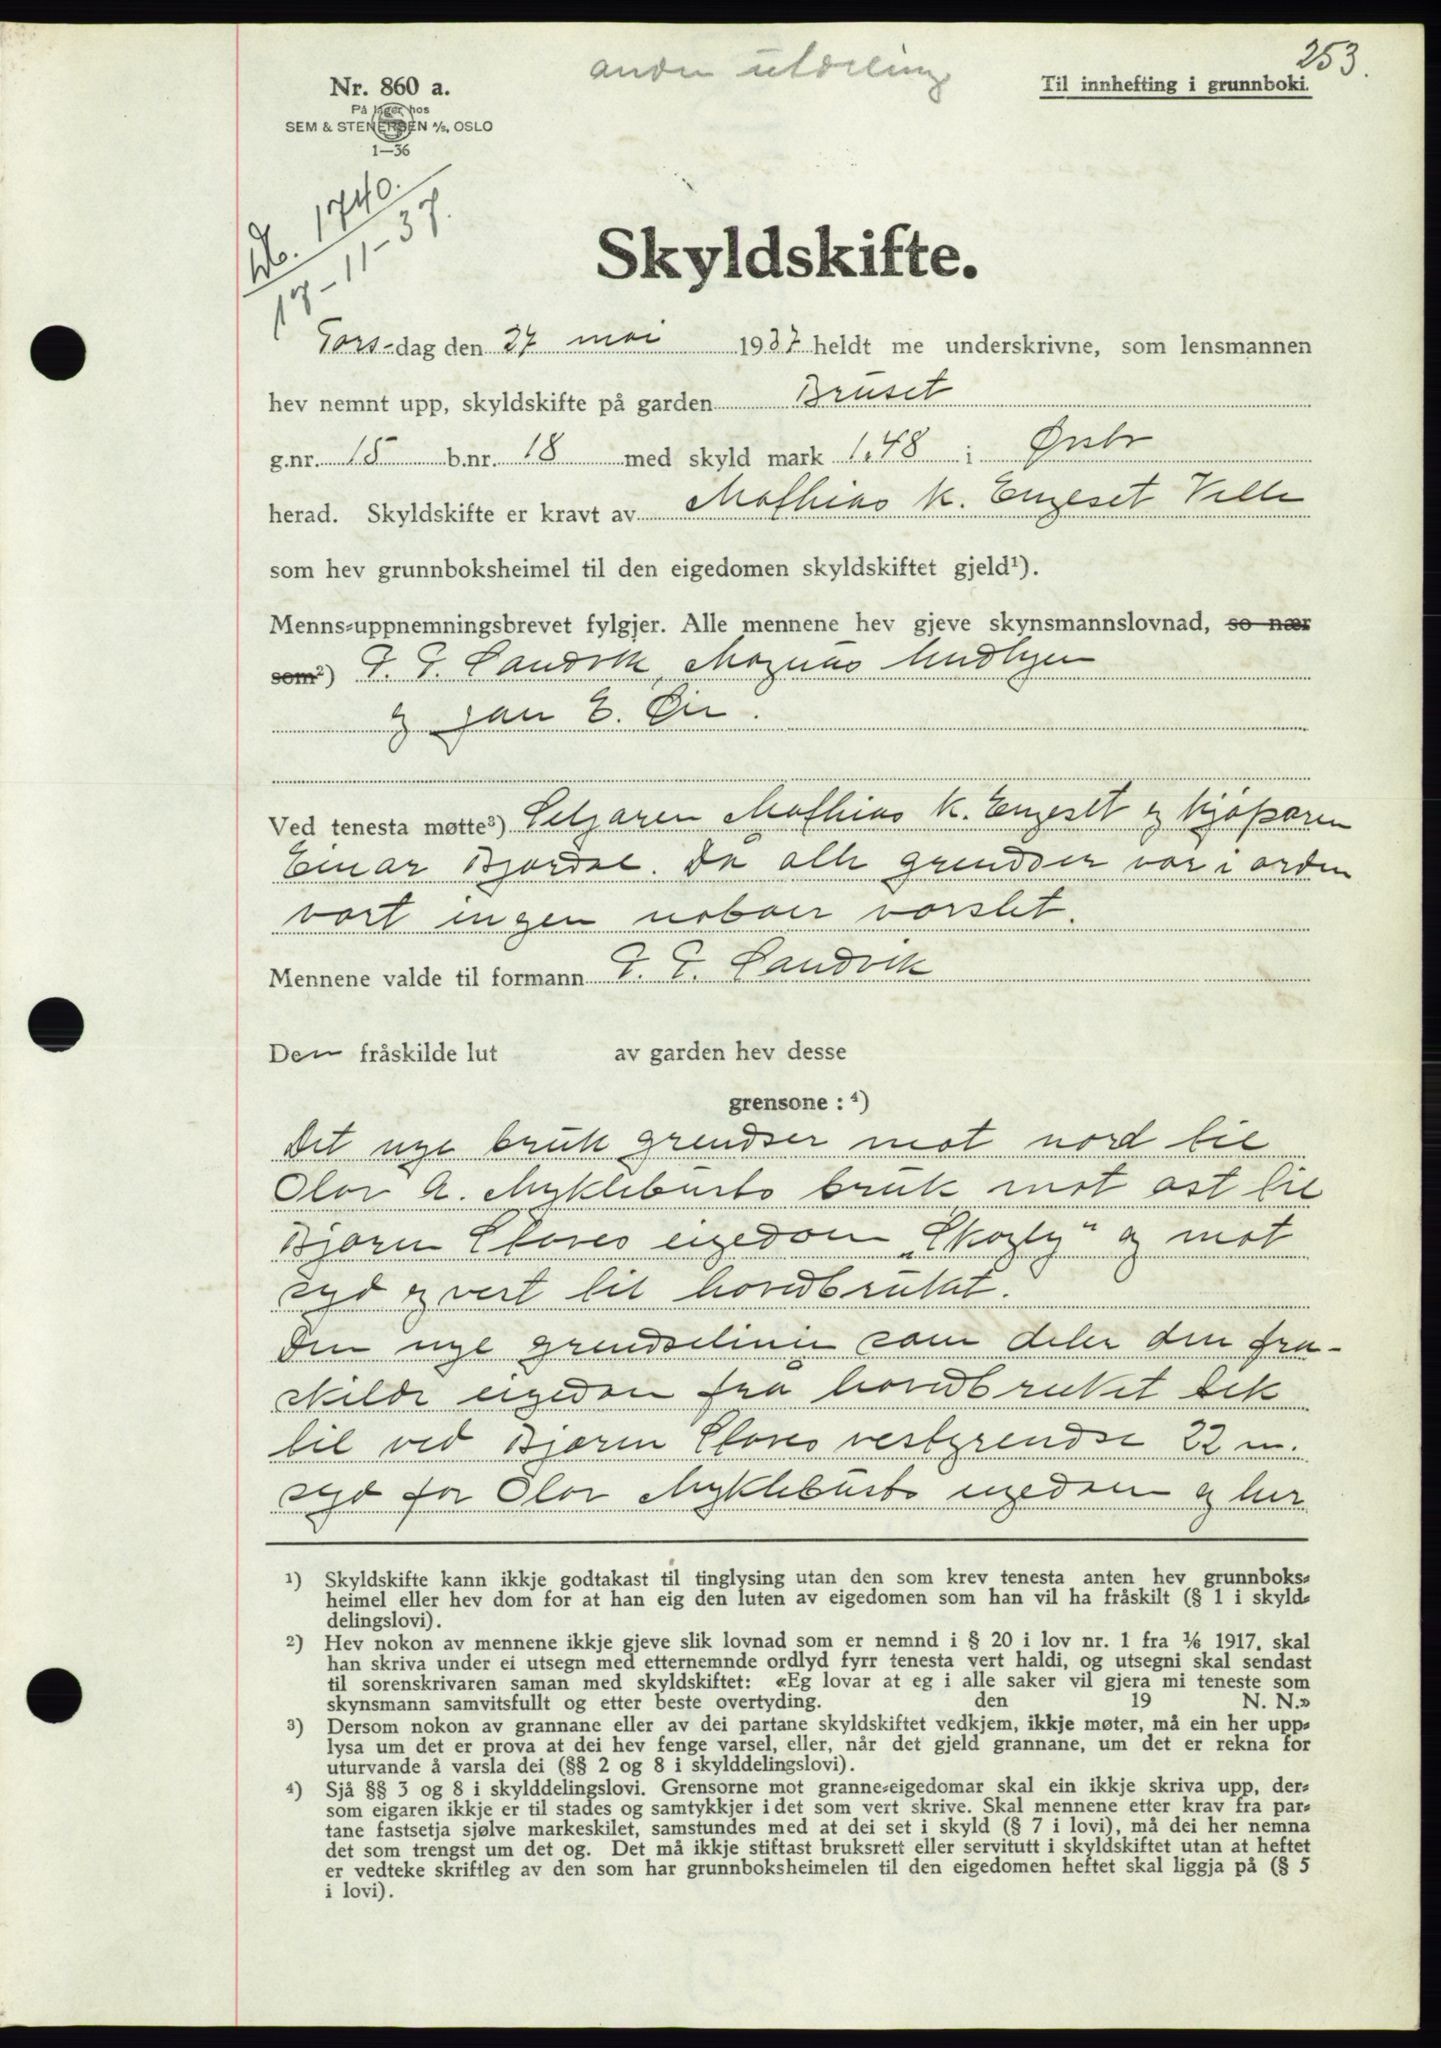 253.
anden utdeling
Nr. 860 a.
På lager hos
SEM & STENERSEN A/S, OSLO
1—36
Til innhefting i grunnboki.
Db. 1740.
17-11-37.
Skyldskifte.
Tors-dag den 27 mai 1937 heldt me underskrivne, som lensmannen
hev nemnt upp, skyldskifte på garden Bruset
g.nr. 15 b.nr. 18 med skyld mark 1,48 i Ørsta
herad. Skyldskifte er kravt av Mathias K. Engeset Velle
som hev grunnboksheimel til den eigedomen skyldskiftet gjeld¹).
Menns-uppnemningsbrevet fylgjer. Alle mennene hev gjeve skynsmannslovnad, so nær
som²) P. P. Sandvik, Magnus Undhjem
og Jan E. Øie.
Ved tenesta møtte³) Seljaren Mathias K. Engeset og kjøparen
Einar Bjørdal. Då alle grendser var i orden
vart ingen naboer varslet.
Mennene valde til formann P. P. Sandvik
Den fråskilde lut av garden hev desse
grensone : ⁴)
Det nye bruk grendser mot nord til
Olav A. Myklebusts bruk mot ost til
Bjørn Støves eigedom „Skogly" og mot
syd og vest til hovedbruket.
Den nye grendselinie som deler den fra-
skilde eigedom frå hovedbruket tek
til ved Bjørn Støves vestgrendse 22 m.
syd for Olav Myklebusts eigedom og her
¹) Skyldskifte kann ikkje godtakast til tinglysing utan den som krev tenesta anten hev grunnboks-
heimel eller hev dom for at han eig den luten av eigedomen som han vil ha fråskilt (§ 1 i skyld-
delingslovi).
²) Hev nokon av mennene ikkje gjeve slik lovnad som er nemnd i § 20 i lov nr. 1 fra ⅙ 1917, skal
han skriva under ei utsegn med etternemnde ordlyd fyrr tenesta vert haldi, og utsegni skal sendast
til sorenskrivaren saman med skyldskiftet: «Eg lovar at eg i alle saker vil gjera mi teneste som
skynsmann samvitsfullt og etter beste overtyding. den 19 N. N.»
³) Dersom nokon av grannane eller av dei partane skyldskiftet vedkjem, ikkje møter, må ein her upp-
lysa um det er prova at dei hev fenge varsel, eller, når det gjeld grannane, um det er rekna for
uturvande å varsla dei (§§ 2 og 8 i skylddelingslovi).
⁴) Sjå §§ 3 og 8 i skylddelingslovi. Grensorne mot granne-eigedomar skal ein ikkje skriva upp, der-
som eigaren ikkje er til stades og samtykkjer i det som vert skrive. Skal mennene etter krav fra par-
tane fastsetja sjølve markeskilet, samstundes med at dei set i skyld (§ 7 i lovi), må dei her nemna
det som trengst um det og. Det må ikkje stiftast bruksrett eller servitutt i skyldskiftet utan at heftet
er vedteke skriftleg av den som har grunnboksheimelen til den eigedomen heftet skal liggja på (§ 5
i lovi).